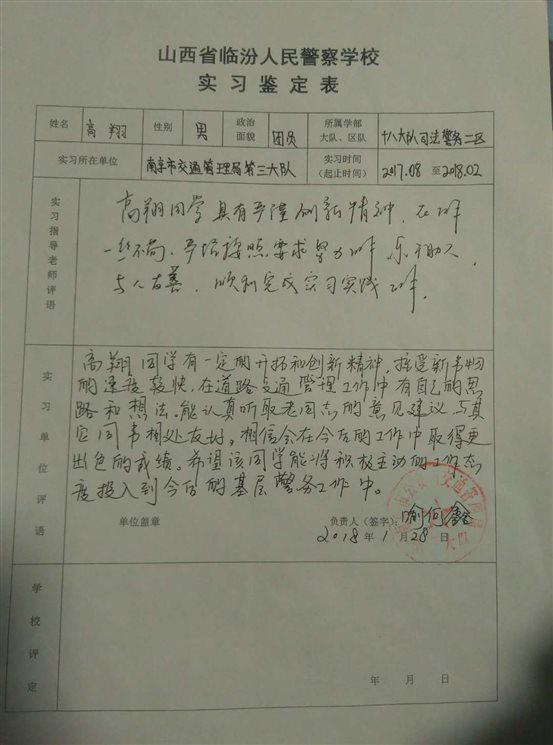 山西省临汾人民警察学校
实习鉴定表
姓名 高翔 性别 男 政治面貌 团员 所属学部大队、区队 十八大队司法警务二区
实习所在单位 南京市交通管理局第三大队 实习时间(起止时间) 2017.08 至 2018.02
实习指导老师评语
高翔同学具有严谨创新精神，在工作
一丝不苟、严格按照要求努力工作 乐于助人，
与人友善，顺利完成实习实践工作。
实习单位评语
高翔同学有一定的开拓和创新精神，接受新事物
的速度较快，在道路交通管理工作中有自己的思
路和想法。能认真听取老同志的意见建议 与其
它同事相处友好，相信会在今后的工作中取得更
出色的成绩。希望该同学能将积极主动的工作态
度投入到今后的基层警务工作中。
单位盖章 负责人（签字）：
2018年1月28日
学校评定
年 月 日